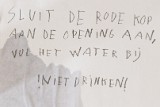 SLUIT DE RODE KOP
AAN DE OPENING AAN,
VUL HET WATER BIJ
!NIET DRINKEN!